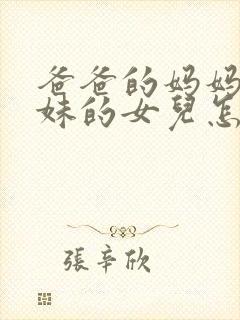 爸爸的妈妈
妹的女兒怎
張辛欣